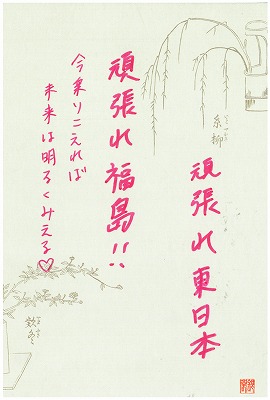 頑張れ東日本
頑張れ福島!!
今乗りこえれば
未来は明るくみえる♡
糸柳